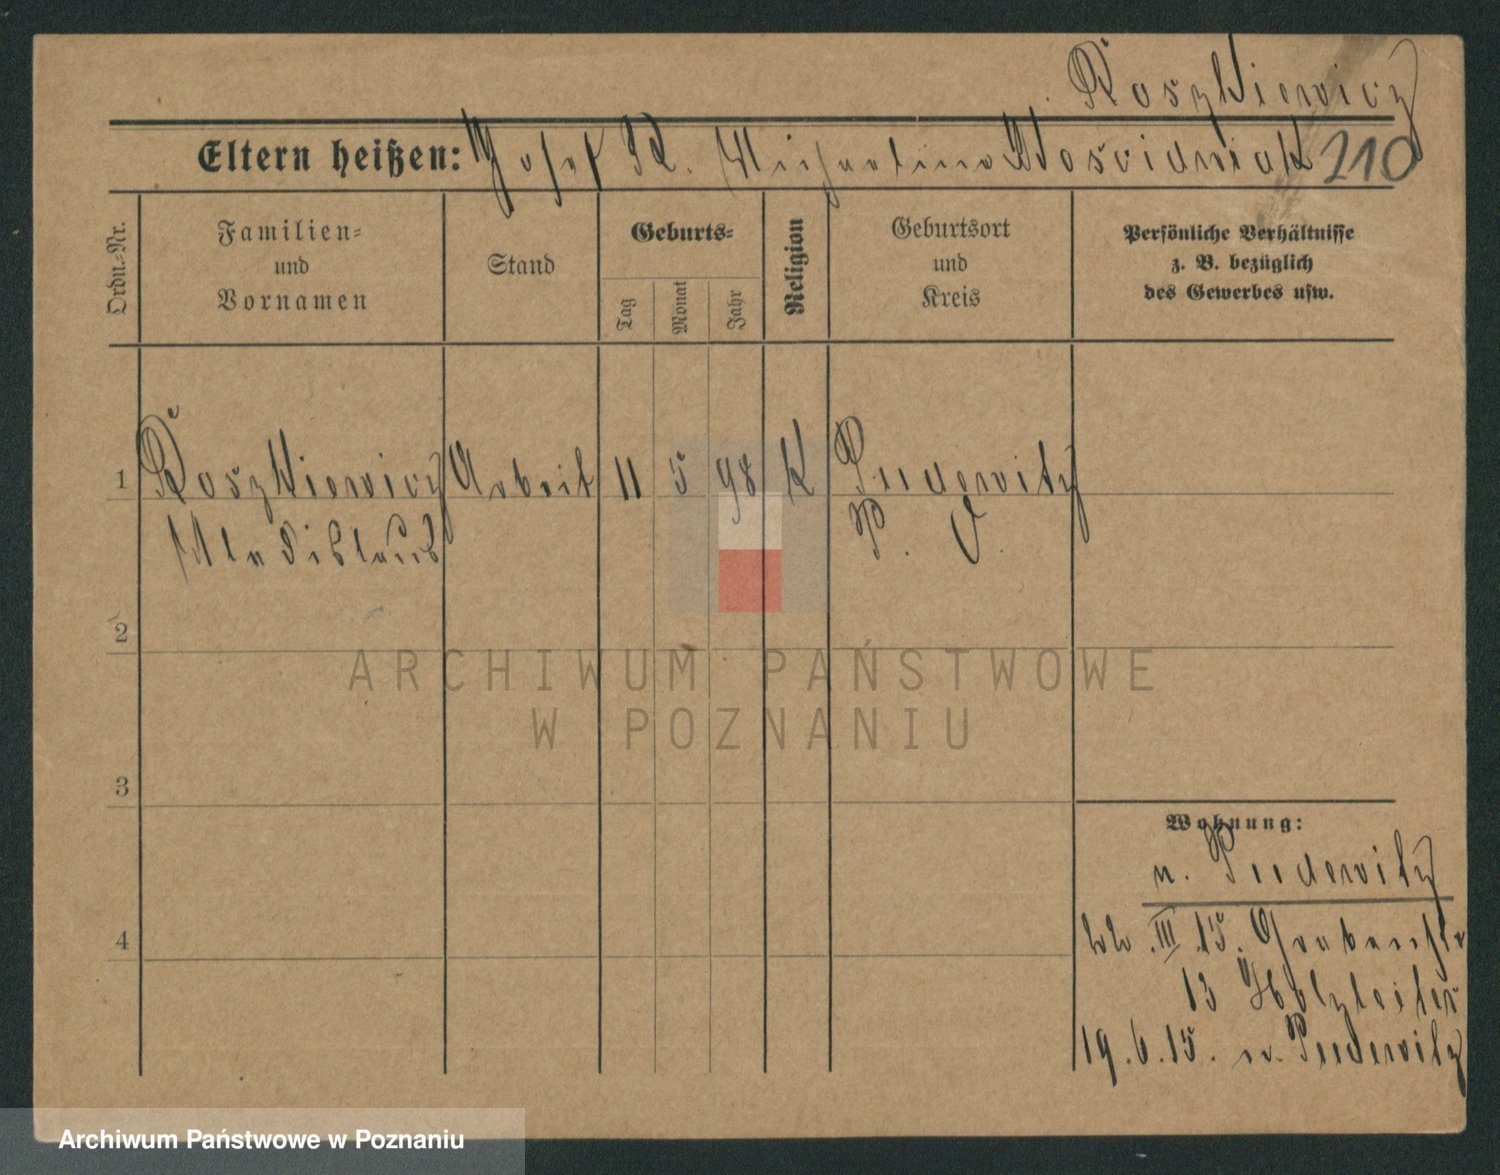 Roszkiewicz
Eltern heißen: Josef R. Michalina Woscidniak 210
Ordn.-Nr.
Familien-
und
Vornamen
Stand
Geburts-
Tag
Monat
Jahr
Religion
Geburtsort
und
Kreis
Persönliche Verhältnisse
z. B. bezüglich
des Gewerbes usw.
1 Roszkiewicz Arbeit 11 5 98 K Pudewitz
Wladislaus P. O.
2
ARCHIWUM PAŃSTWOWE
W POZNANIU
3
Wohnung:
n. Pudewitz
4
III 15. Grabenstr
13 Holzleiter
19.6.15. n. Pudewitz
Archiwum Państwowe w Poznaniu